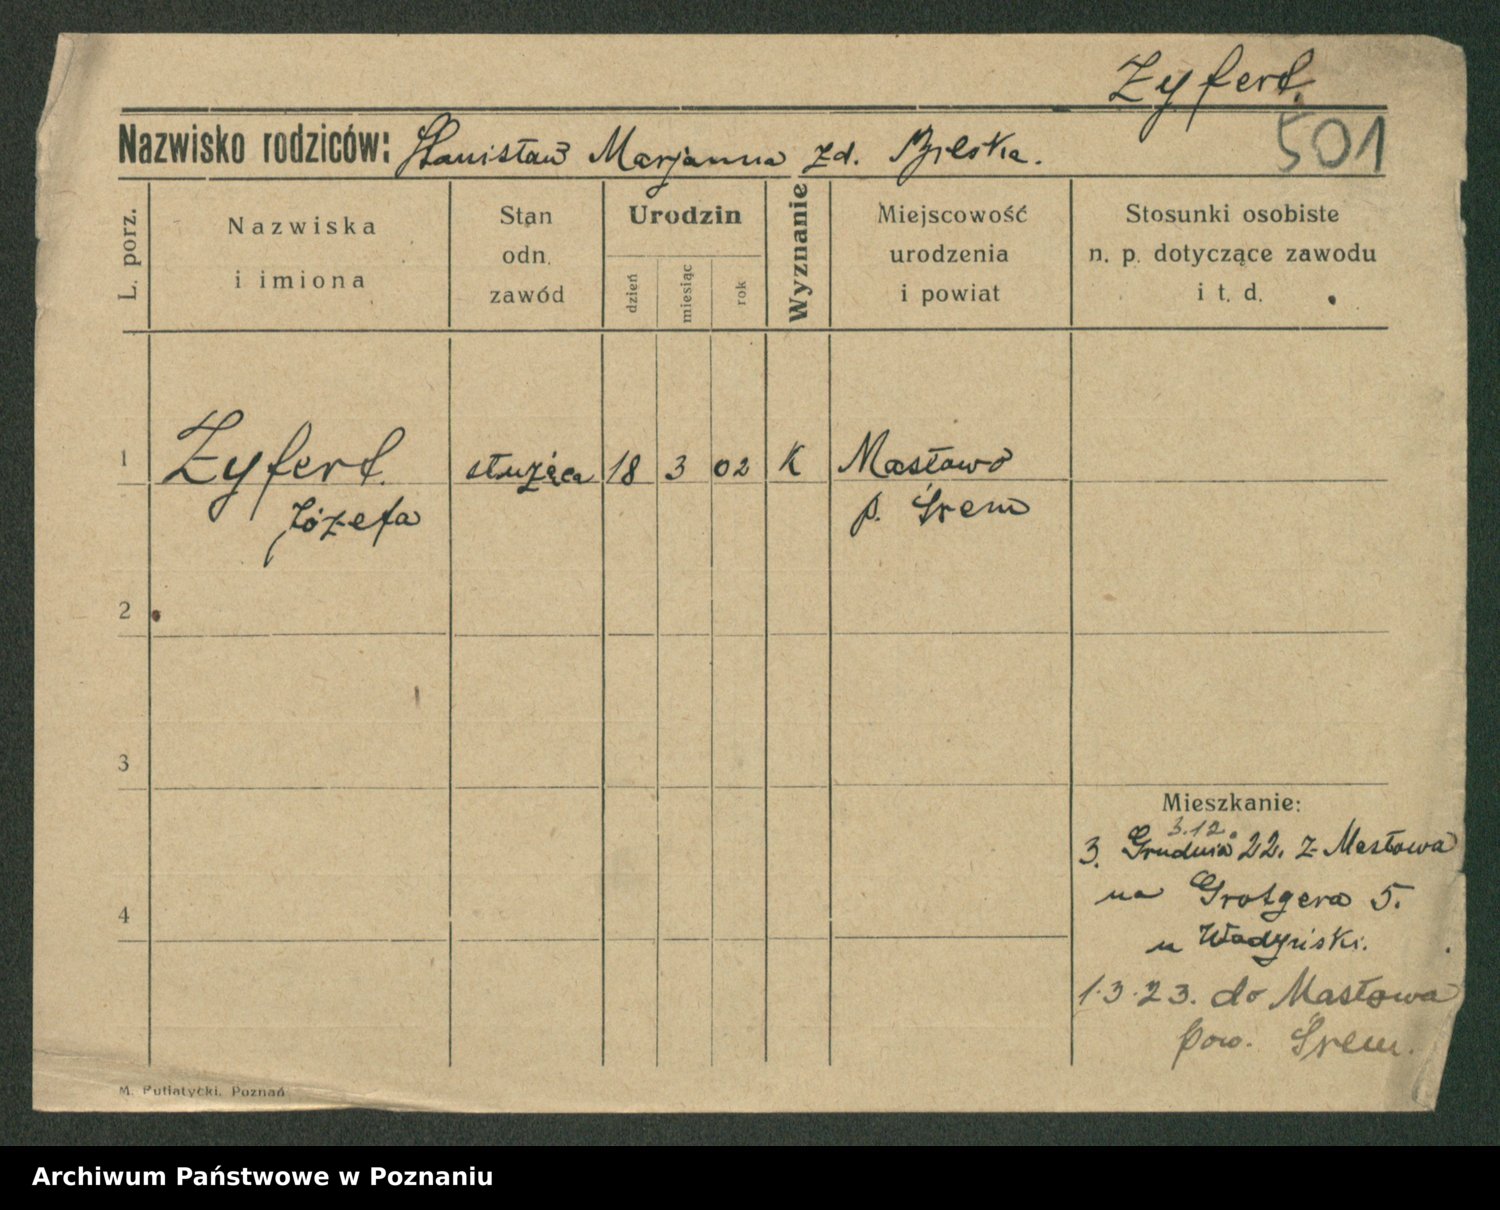 Zyfert.
501
Nazwisko rodziców: Stanisław Marjanna zd. Bielska.
L. porz.
Nazwiska
i imiona
Stan
odn.
zawód
Urodzin
dzień
miesiąc
rok
Wyznanie
Miejscowość
urodzenia
i powiat
Stosunki osobiste
n. p. dotyczące zawodu
i t. d.
1 Zyfert służąca 18 3 02 K Masłowo
Józefa p. Śrem
2
3
Mieszkanie:
3.12.
3. Grudnia 22. z Masłowa
na Grotgera 5.
4
u
1.3.23. do Masłowa
pow. Śrem.
M. Putiatycki, Poznań
Archiwum Państwowe w Poznaniu